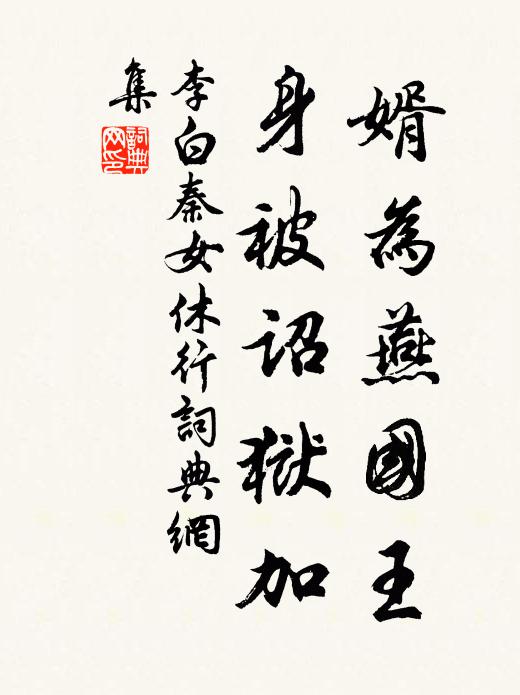 婿為燕國王
身被詔獄加
李白秦女休行詞典網
集
詞典網印